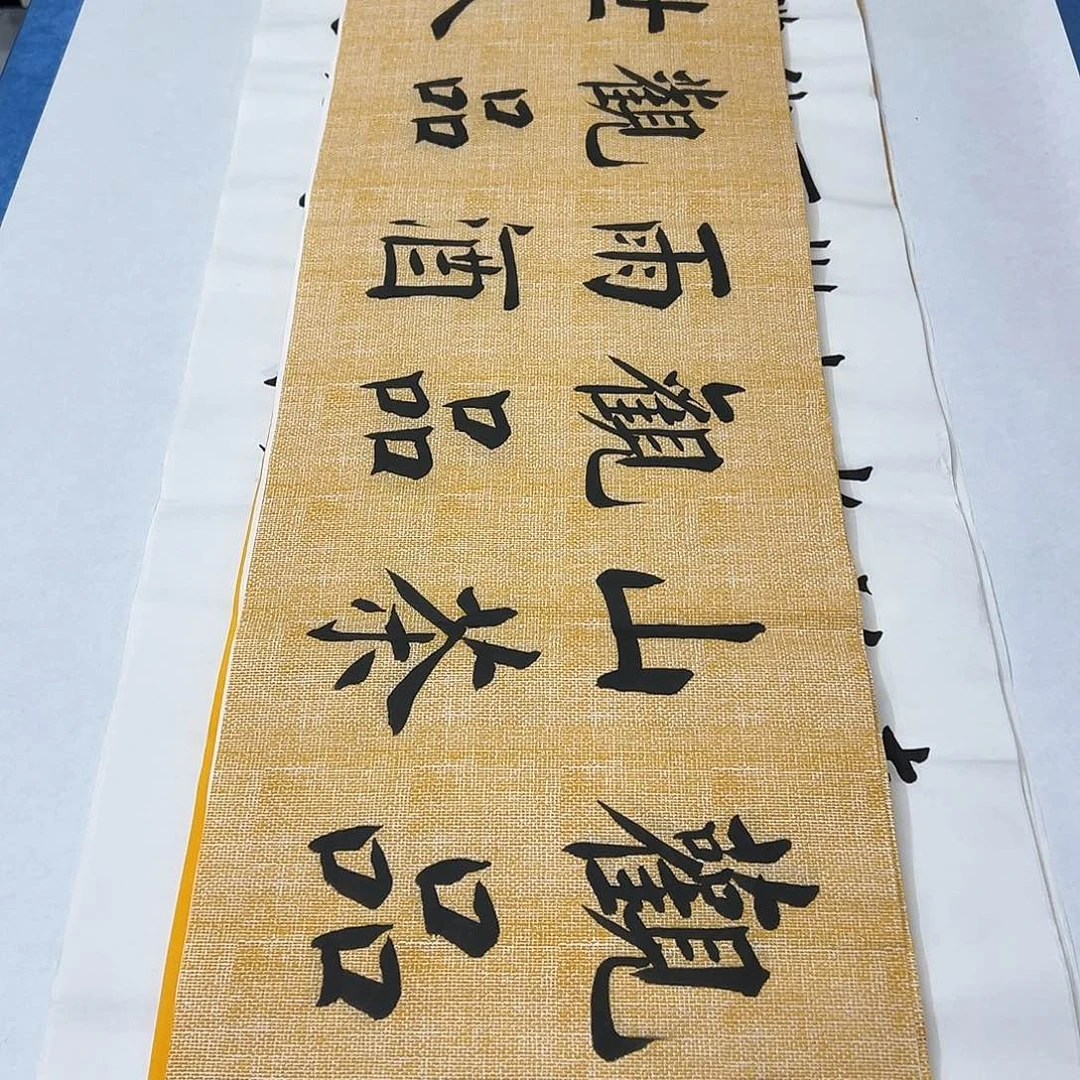 觀山觀雨觀
品茶品酒品